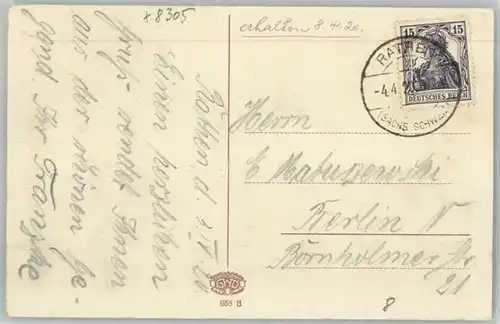 x 8305
erhalten 8.4.20.
Rathen d. 3.IV.20
Einen herzlichen
Gruß sendet Ihnen
aus der schönen Ge-
gend Ihr
15 15
DEUTSCHES REICH
RATHEN
-4.4.2
(SÄCHS. SCHWEIZ)
Herrn
E Matuszewski
Berlin N
Bornholmer Str
21
8
638 B